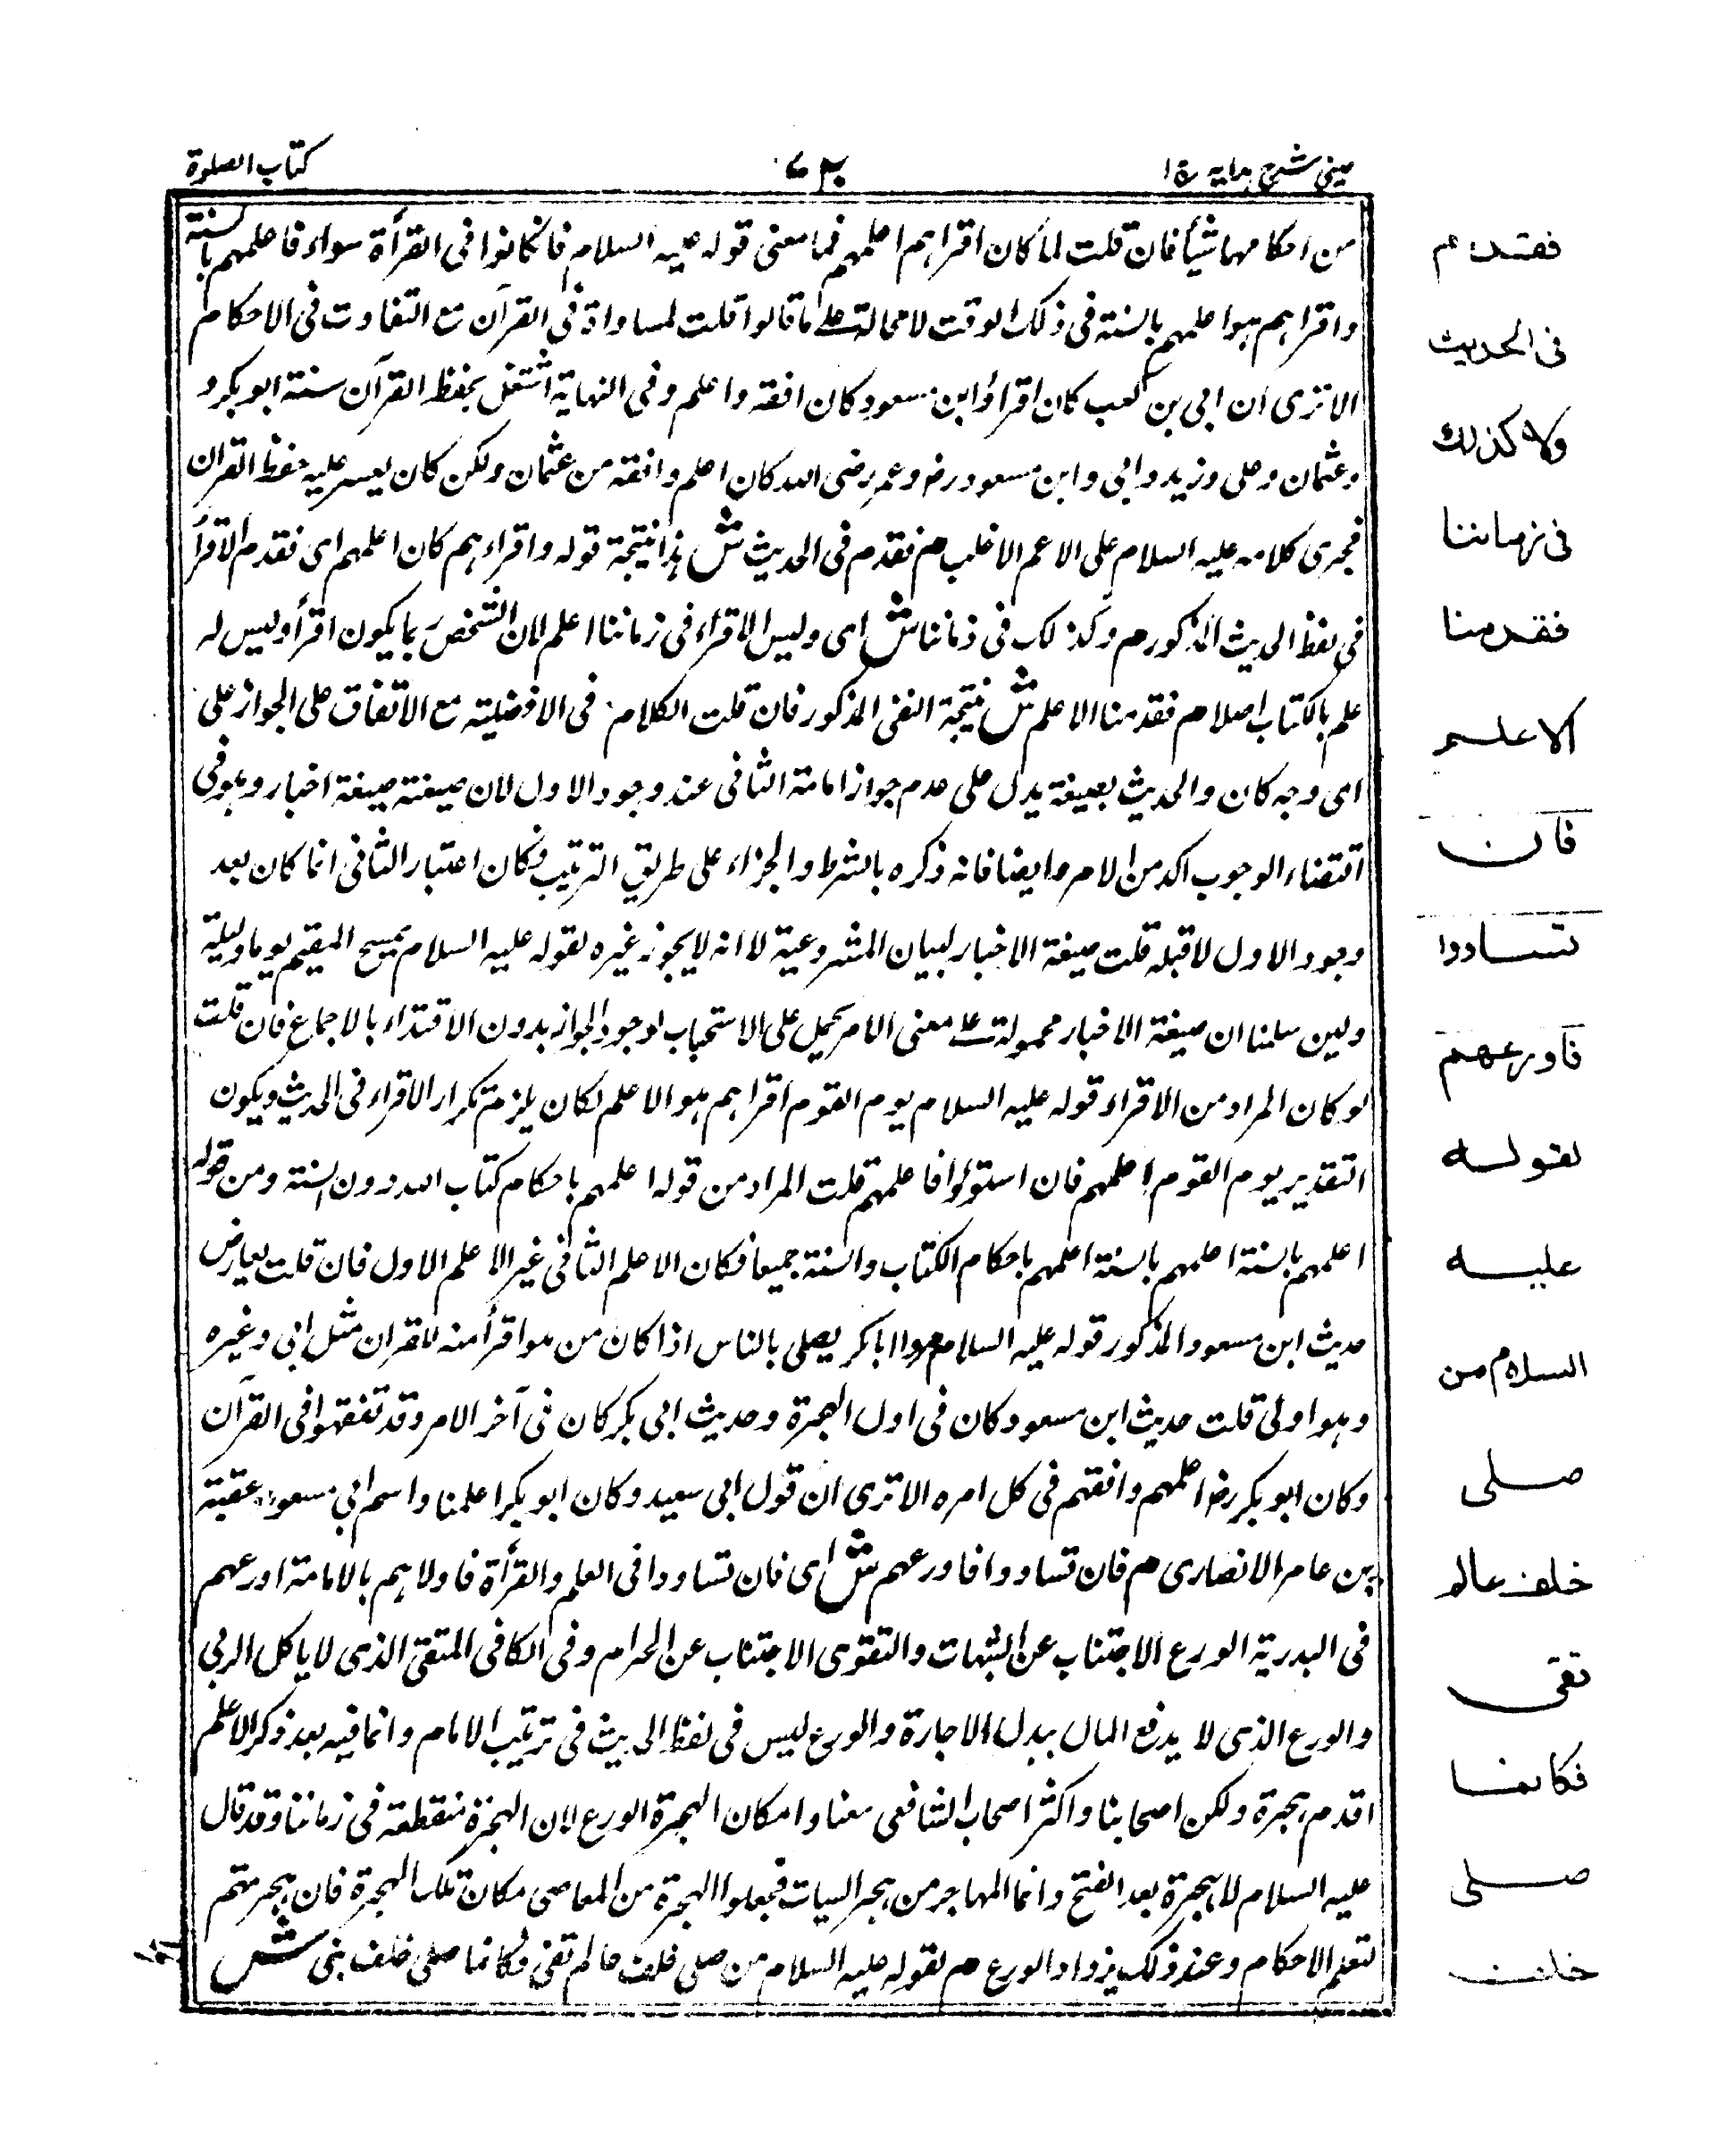 عینی شرح هدایه ج ا
۷۳۰
کتاب الصلوة
من احکامها شیأ فان قلت لما کان اقراهم اعلمهم فما معنی قوله علیه السلام فان کانوا فی القرأة سواء فاعلمهم بالسنة
واقراهم هوا علمهم بالسنة فی ذلک الوقت لا محالة علی ما قالوا قلت لمساواة فی القرآن مع التفاوت فی الاحکام
الا تری ان ابی بن کعب کان اقرأ وابن مسعود کان افقه واعلم وفی النهایة اشتغل بحفظ القرآن ستة ابو بکر و
وعثمان وعلی وزید وابی وابن مسعود رض وعمر رضی الله کان اعلم وافقه من عثمان ولکن کان یعسر علیه حفظ القران
فجری کلامه علیه السلام علی الاعم الاغلب م فقدم فی الحدیث ش هذا نتیجة قوله واقراءهم کان اعلمهم ای فقدم الاقرأ
فی لفظ الحدیث المذکور م وکذلک فی زماننا ش ای ولیس الاقراء فی زماننا اعلم لان الشخص ربما یکون اقرأ ولیس له
علم بالکتاب اصلا م فقدمنا الاعلم ش نتیجة النفی المذکور فان قلت الکلام فی الافضلیته مع الاتفاق علی الجواز علی
ای وجه کان والحدیث بصیغة یدل علی عدم جواز امامة الثانی عند وجود الاول لان صیغته صیغة اخبار وهو فی
اقتضاء الوجوب اکد من الامر وایضا فانه ذکره بالشرط والجزاء علی طریق الترتیب فکان اعتبار الثانی انما کان بعد
وجود الاول لا قبله قلت صیغة الاخبار لبیان المشروعیة لا انه لا یجوز غیره لقوله علیه السلام یمسح المقیم یوما ولیلة
ولین سلمنا ان صیغة الاخبار محمولة علی معنی الامر یحمل علی الاستحباب لوجود الجواز بدون الاقتداء بالاجماع فان قلت
لو کان المراد من الاقراء قوله علیه السلام یوم القوم اقراهم هو الاعلم لکان یلزم تکرار الاقراء فی الحدیث ویکون
التقدیر یوم القوم اعلمهم فان استووا فاعلمهم قلت المراد من قوله اعلمهم باحکام کتاب الله دون السنة ومن قوله
اعلمهم بالسنة اعلمهم بالسنة اعلمهم باحکام الکتاب والسنة جمیعا فکان الاعلم الثانی غیر الاعلم الاول فان قلت یعارض
حدیث ابن مسعود المذکور قوله علیه السلام مروا ابابکر یصلی بالناس اذا کان من هو اقرأ منه للقران مثل ابی وغیره
وهو اولی قلت حدیث ابن مسعود کان فی اول الهجرة وحدیث ابی بکر کان فی آخر الامر وقد تفقهوا فی القرآن
وکان ابو بکر رض اعلمهم وافقهم فی کل امره الا تری ان قول ابی سعید وکان ابو بکر اعلمنا واسم ابی مسعود عقبة
بن عامر الانصاری م فان تساووا فاورعهم ش ای فان تساووا فی العلم والقرأة فاولاهم بالامامة اورعهم
فی البدریة الورع الاجتناب عن الشبهات والتقوی الاجتناب عن الحرام وفی الکافی المتقی الذی لا یاکل الربی
والورع الذی لا یدفع المال ببدل الاجارة والورع لیس فی لفظ الحدیث فی ترتیب الامام وانما فیه بعد ذکر الاعلم
اقدم هجرة ولکن اصحابنا واکثر اصحاب الشافعی معنا وامکان الهجرة الورع لان الهجرة منقطعة فی زماننا وقد قال
علیه السلام لا هجرة بعد الفتح وانما المهاجر من هجر السیات فجعلوا الهجرة من المعاصی مکان تلک الهجرة فان هجرتهم
لتعلم الاحکام وعند ذلک یزداد الورع م لقوله علیه السلام من صلی خلف عالم تقی فکانما صلی خلف نبی ش
فقدم
فی الحدیث
ولا کذلک
فی زماننا
فقدمنا
الاعلم
فان
تساووا
فاورعهم
لقوله
علیه
السلام من
صلی
خلف عالم
تقی
فکانما
صلی
خلف